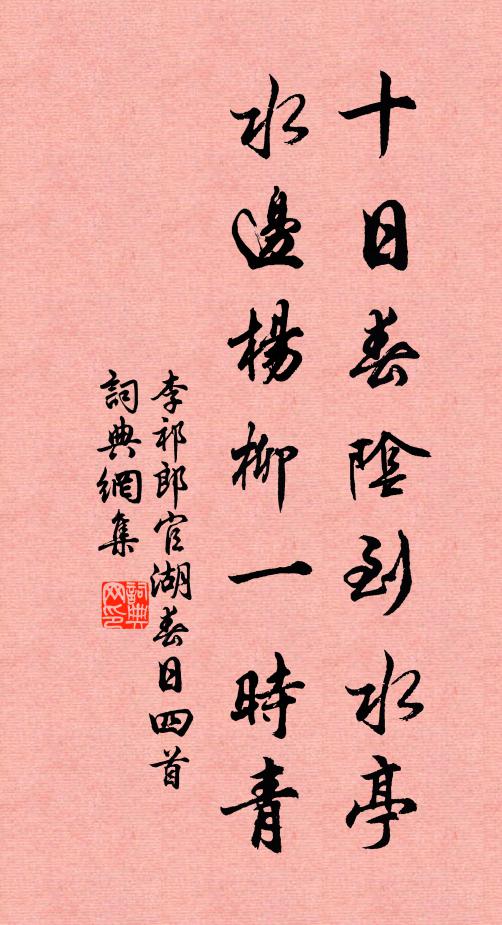 十日春陰到水亭
水邊楊柳一時青
李祁郎官湖春日四首
詞典網集
詞典网印